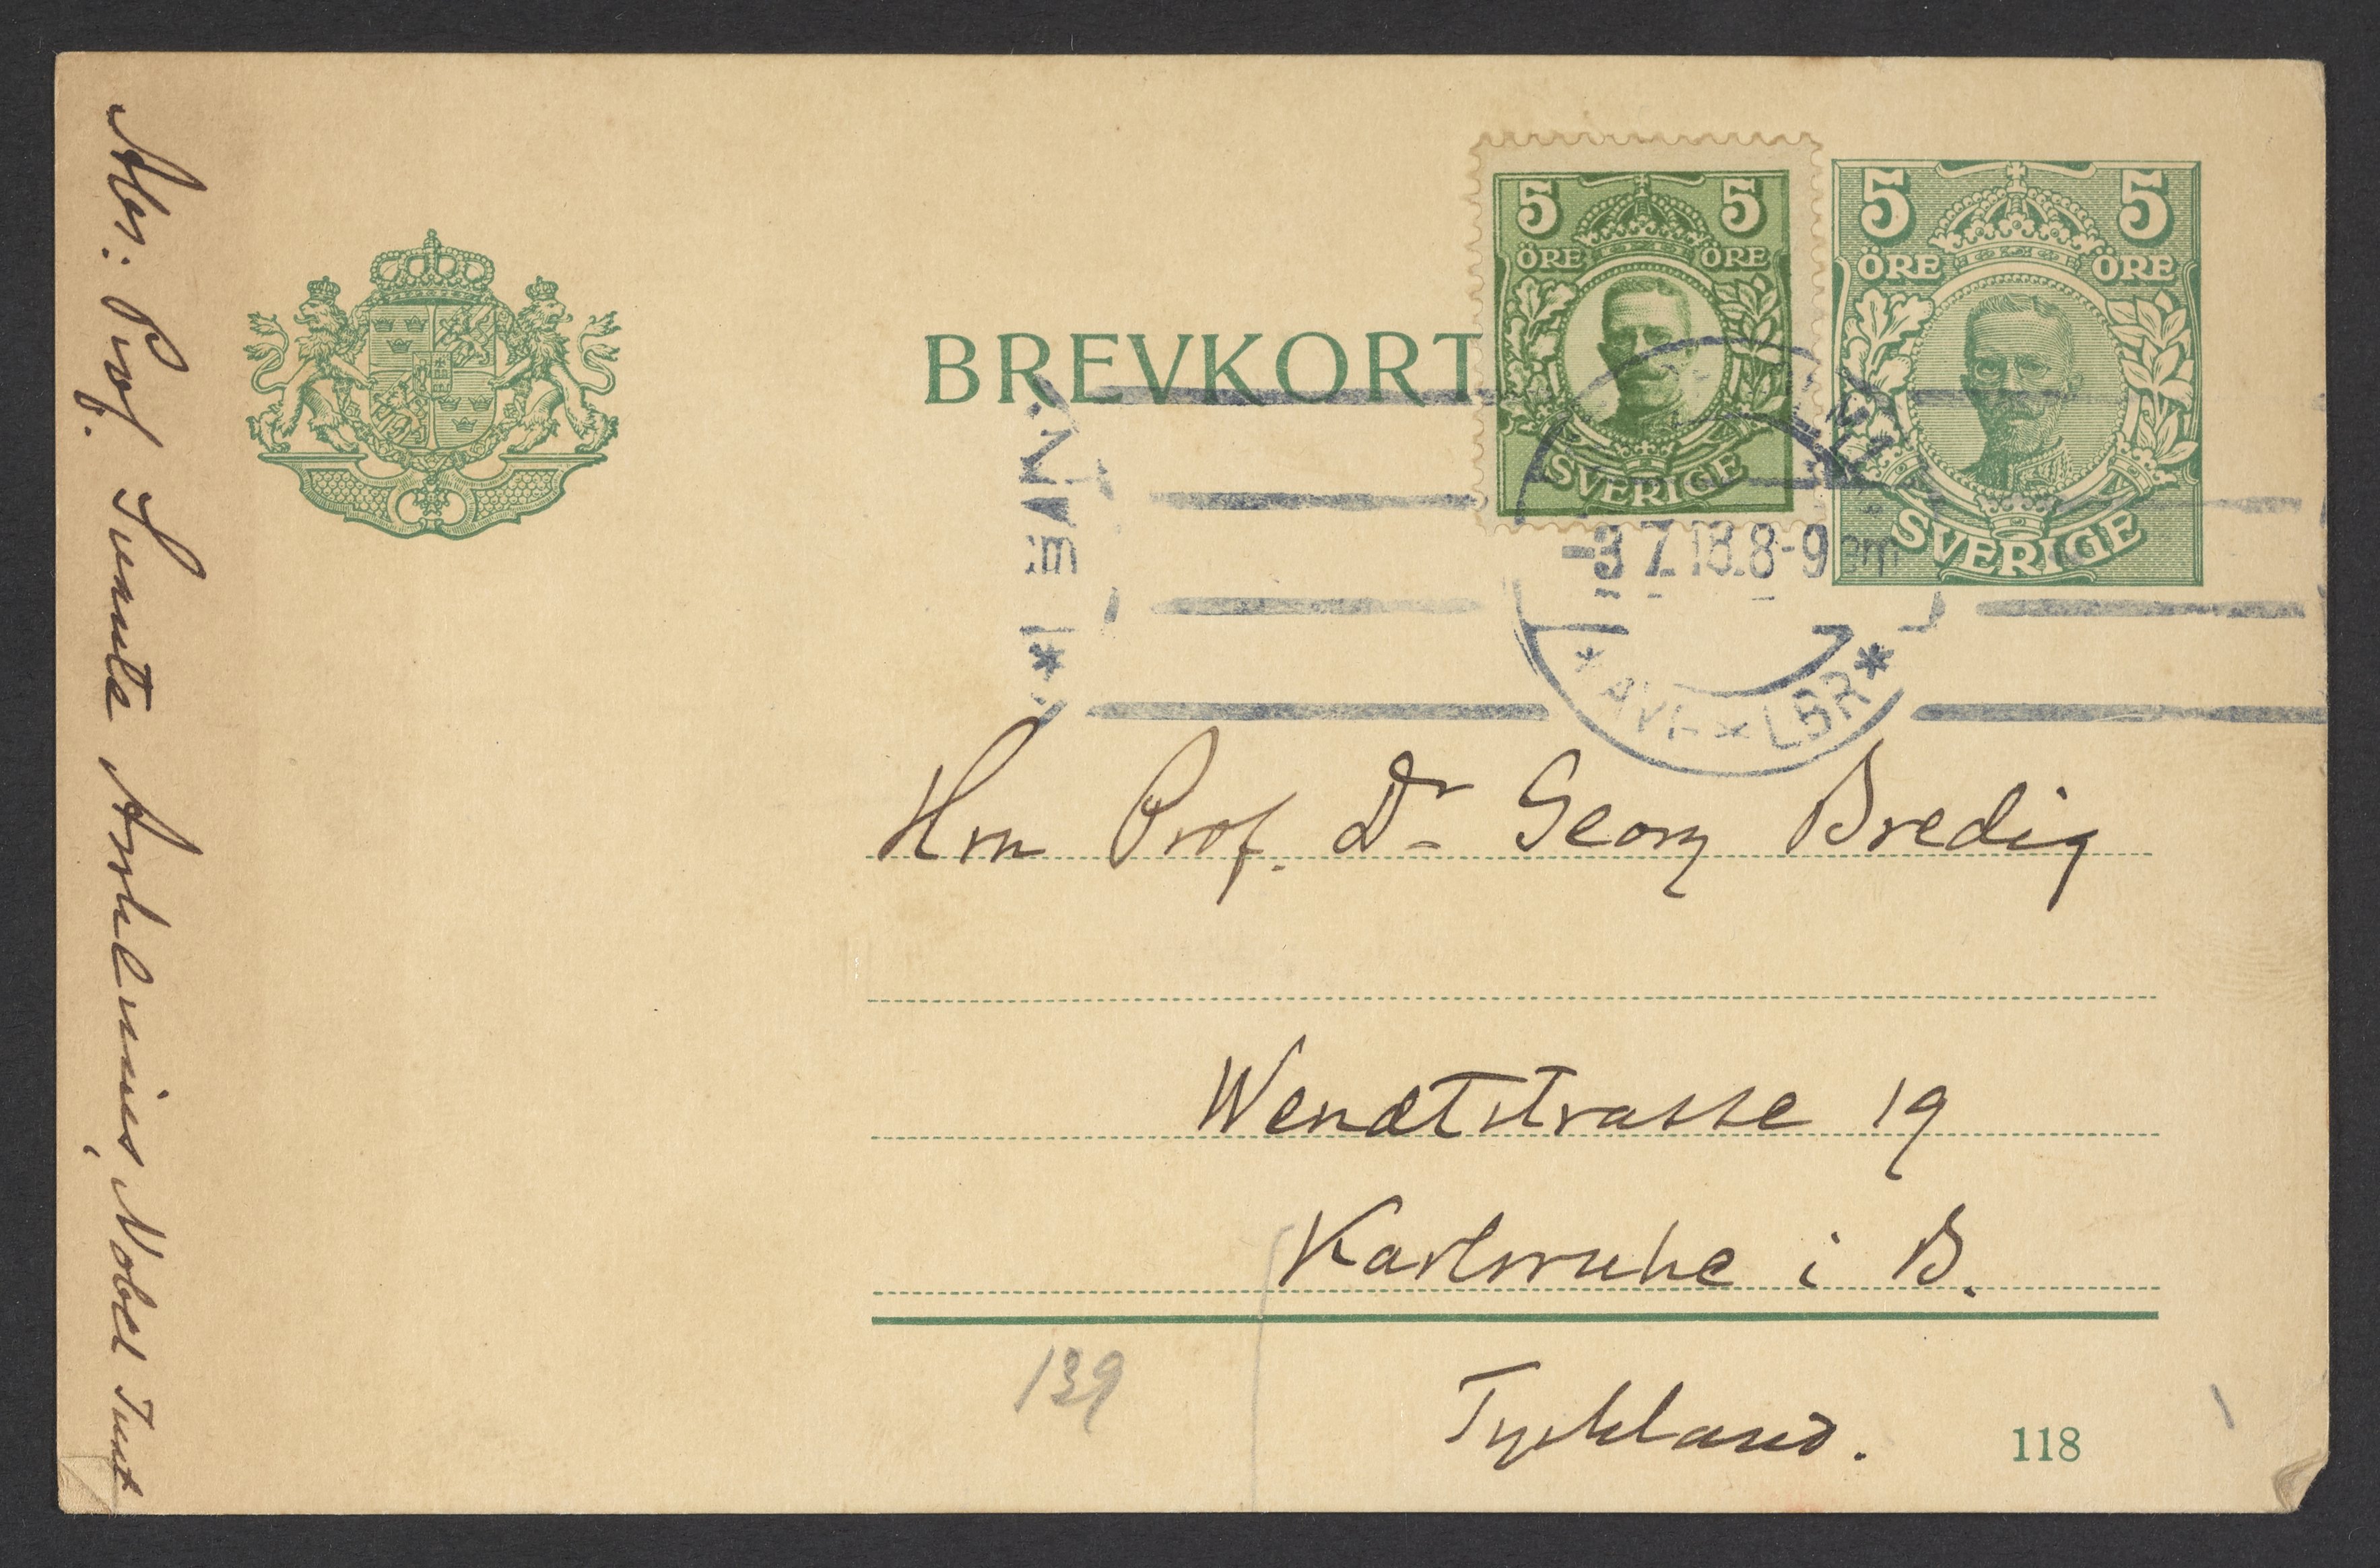 BREVKORT
5 5
ÖRE ÖRE
SVERIGE
5 5
ÖRE ÖRE
SVERIGE
-3 7.18.8-9 em
* AVG * LBR *
Hrn Prof. Dr Georg Bredig
Wendtstrasse 19
Karlsruhe i B.
Tyskland.
139
118
Abs: Prof. Svante Arrhenius, Nobel Inst